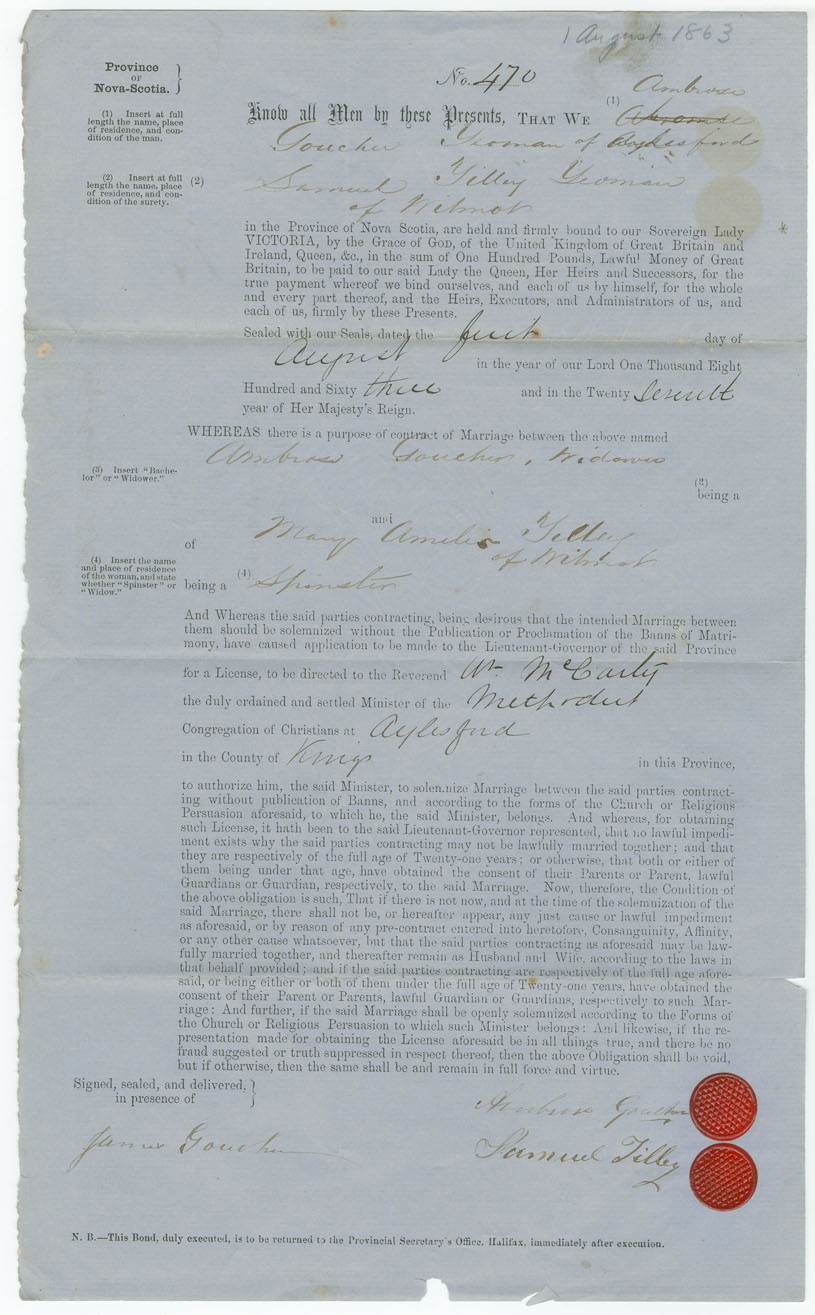 1 August 1863
Province
OF
Nova-Scotia. }
No. 470
(1) Ambrose
Know all Men by these Presents, THAT WE
(1) Insert at full
length the name, place
of residence, and con-
dition of the man.
Goucher Yeoman of Aylesford
(2) Insert at full
length the name, place
of residence, and con-
dition of the surety.
(2) Samuel Tilley Yeoman
of Wilmot
in the Province of Nova Scotia, are held and firmly bound to our Sovereign Lady
VICTORIA, by the Grace of GOD, of the United Kingdom of Great Britain and
Ireland, Queen, &c., in the sum of One Hundred Pounds, Lawful Money of Great
Britain, to be paid to our said Lady the Queen, Her Heirs and Successors, for the
true payment whereof we bind ourselves, and each of us by himself, for the whole
and every part thereof, and the Heirs, Executors, and Administrators of us, and
each of us, firmly by these Presents.
Sealed with our Seals, dated the first day of
August in the year of our Lord One Thousand Eight
Hundred and Sixty three and in the Twenty Seventh
year of Her Majesty's Reign.
WHEREAS there is a purpose of contract of Marriage between the above named
Ambrose Goucher, Widower
(3) Insert "Bache-
lor" or "Widower."
(3)
being a
and
of Mary Amelia Tilley
of Wilmot
(4) Insert the name
and place of residence
of the woman, and state
whether "Spinster" or
"Widow."
being a (4) Spinster
And Whereas the said parties contracting, being desirous that the intended Marriage between
them should be solemnized without the Publication or Proclamation of the Banns of Matri-
mony, have caused application to be made to the Lieutenant-Governor of the said Province
for a License, to be directed to the Reverend Wm McCarty
the duly ordained and settled Minister of the Methodist
Congregation of Christians at Aylesford
in the County of Kings in this Province,
to authorize him, the said Minister, to solemnize Marriage between the said parties contract-
ing without publication of Banns, and according to the forms of the Church or Religious
Persuasion aforesaid, to which he, the said Minister, belongs. And whereas, for obtaining
such License, it hath been to the said Lieutenant-Governor represented, that no lawful impedi-
ment exists why the said parties contracting may not be lawfully married together; and that
they are respectively of the full age of Twenty-one years; or otherwise, that both or either of
them being under that age, have obtained the consent of their Parents or Parent, lawful
Guardians or Guardian, respectively, to the said Marriage. Now, therefore, the Condition of
the above obligation is such, That if there is not now, and at the time of the solemnization of the
said Marriage, there shall not be, or hereafter appear, any just cause or lawful impediment
as aforesaid, or by reason of any pre-contract entered into heretofore, Consanguinity, Affinity,
or any other cause whatsoever, but that the said parties contracting as aforesaid may be law-
fully married together, and thereafter remain as Husband and Wife, according to the laws in
that behalf provided; and if the said parties contracting are respectively of the full age afore-
said, or being either or both of them under the full age of Twenty-one years, have obtained the
consent of their Parent or Parents, lawful Guardian or Guardians, respectively to such Mar-
riage: And further, if the said Marriage shall be openly solemnized according to the Forms of
the Church or Religious Persuasion to which such Minister belongs: And likewise, if the re-
presentation made for obtaining the License aforesaid be in all things true, and there be no
fraud suggested or truth suppressed in respect thereof, then the above Obligation shall be void,
but if otherwise, then the same shall be and remain in full force and virtue.
Signed, sealed, and delivered, }
in presence of
Ambrose Goucher
James Goucher
Samuel Tilley
N. B.—This Bond, duly executed, is to be returned to the Provincial Secretary's Office, Halifax, immediately after execution.